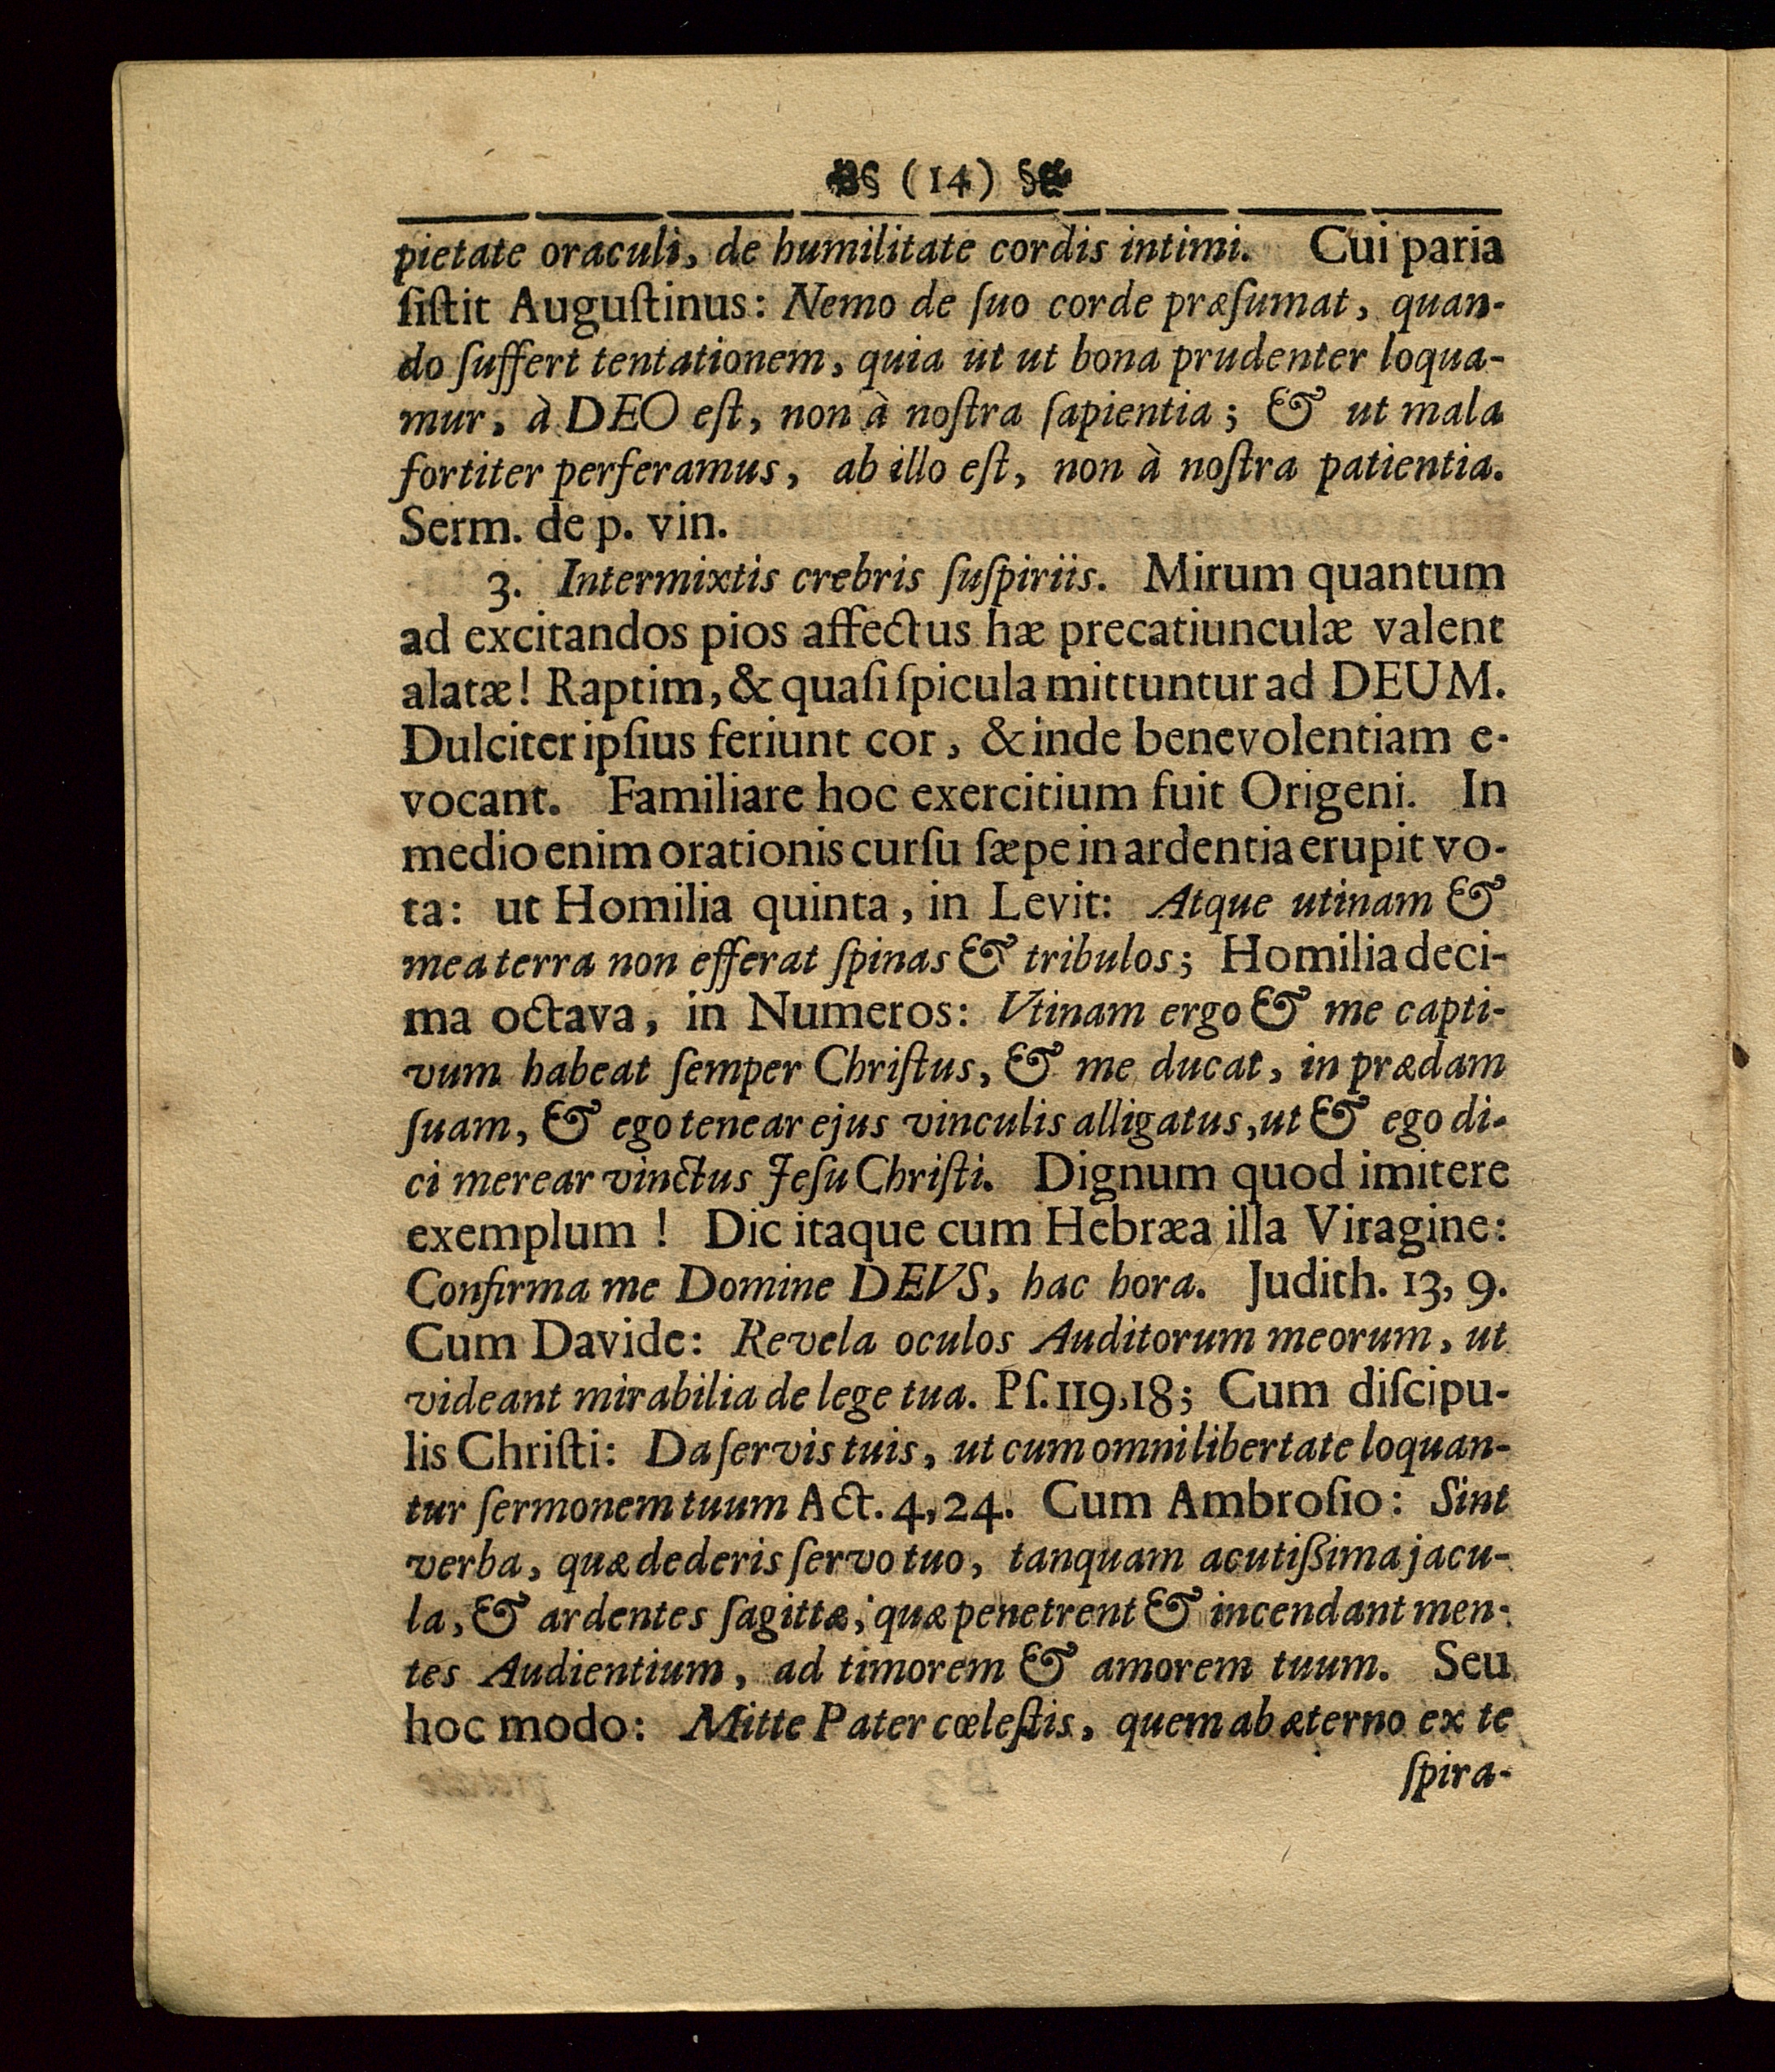 § (14) §
pietate oraculi, de humilitate cordis intimi. Cui paria
ſiſtit Auguſtinus: Nemo de ſuo corde præſumat, quan-
do ſuffert tentationem, quia ut ut bona prudenter loqua-
mur, à DEO eſt, non à noſtra ſapientia; & ut mala
fortiter perferamus, ab illo eſt, non à noſtra patientia.
Serm. de p. vin.
3. Intermixtis crebris ſuſpiriis. Mirum quantum
ad excitandos pios affectus hæ precatiunculæ valent
alatæ! Raptim, & quaſi ſpicula mittuntur ad DEUM.
Dulciter ipſius feriunt cor, & inde benevolentiam e-
vocant. Familiare hoc exercitium fuit Origeni. In
medio enim orationis curſu ſæpe in ardentia erupit vo-
ta: ut Homilia quinta, in Levit: Atque utinam &
mea terra non efferat ſpinas & tribulos; Homilia deci-
ma octava, in Numeros: Vtinam ergo & me capti-
vum habeat ſemper Chriſtus, & me ducat, in prædam
ſuam, & ego tenear ejus vinculis alligatus, ut & ego di-
ci merear vinctus Jeſu Chriſti. Dignum quod imitere
exemplum! Dic itaque cum Hebræa illa Viragine:
Confirma me Domine DEVS, hac hora. Judith. 13, 9.
Cum Davide: Revela oculos Auditorum meorum, ut
videant mirabilia de lege tua. Pſ. 119,18; Cum diſcipu-
lis Chriſti: Da ſervis tuis, ut cum omni libertate loquan-
tur ſermonem tuum Act. 4, 24. Cum Ambroſio: Sint
verba, quæ dederis ſervo tuo, tanquam acutißima jacu-
la, & ardentes ſagittæ, quæ penetrent & incendant men-
tes Audientium, ad timorem & amorem tuum. Seu
hoc modo: Mitte Pater cœleſtis, quem ab æterno ex te
ſpira-